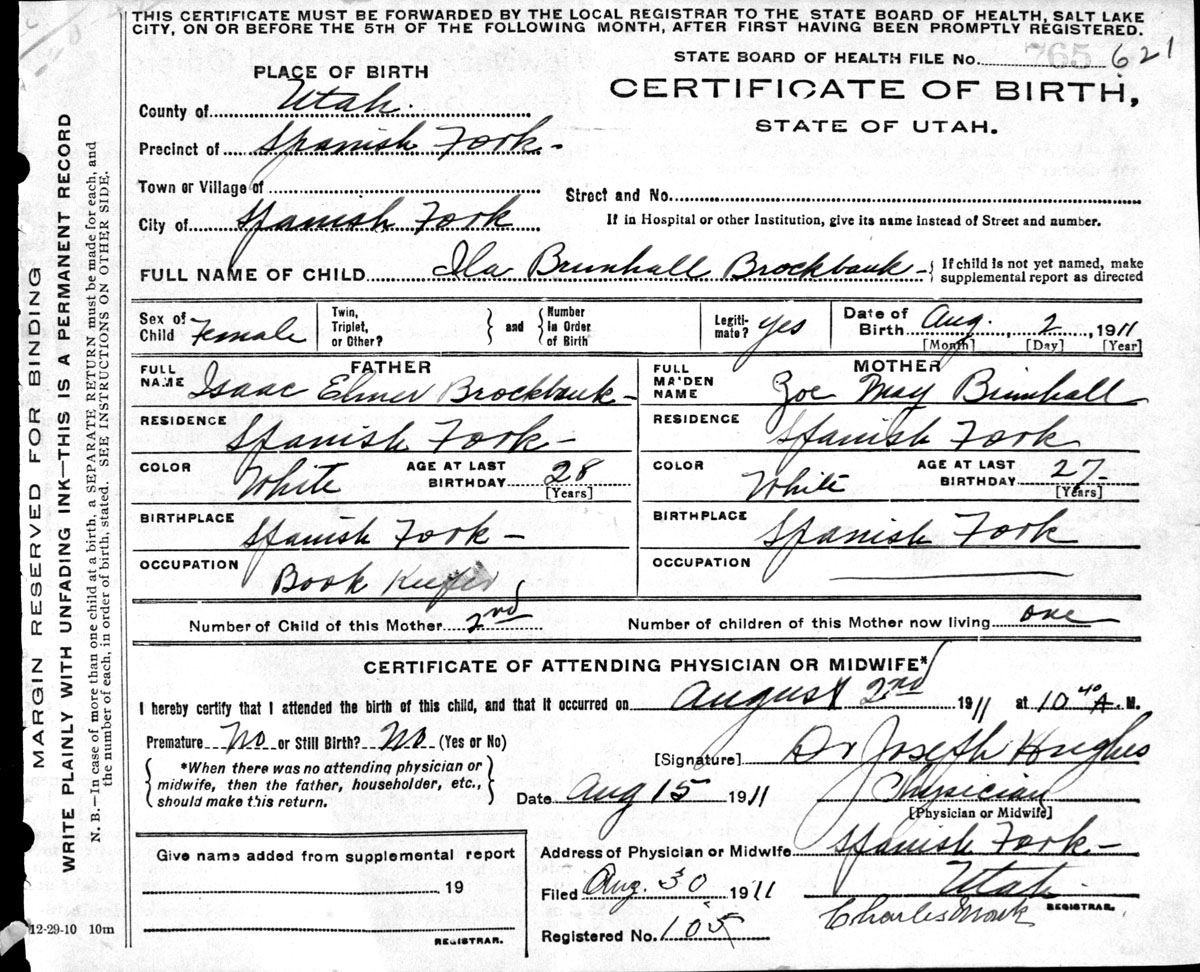 THIS CERTIFICATE MUST BE FORWARDED BY THE LOCAL REGISTRAR TO THE STATE BOARD OF HEALTH, SALT LAKE
CITY, ON OR BEFORE THE 5TH OF THE FOLLOWING MONTH, AFTER FIRST HAVING BEEN PROMPTLY REGISTERED.
STATE BOARD OF HEALTH FILE No. 765 621
PLACE OF BIRTH
CERTIFICATE OF BIRTH,
STATE OF UTAH.
County of Utah.
Precinct of Spanish Fork -
Town or Village of
Street and No.
City of Spanish Fork
If in Hospital or other Institution, give its name instead of Street and number.
FULL NAME OF CHILD Ila Brimhall Brockbank - { If child is not yet named, make
supplemental report as directed
Sex of Child Female
Twin, Triplet, or Other? } and { Number in Order of Birth
Legiti-mate? yes
Date of Birth Aug. 2, 1911
[Month] [Day] [Year]
FATHER
FULL NAME Isaac Elmer Brockbank -
RESIDENCE Spanish Fork -
COLOR White AGE AT LAST BIRTHDAY 28 [Years]
BIRTHPLACE Spanish Fork -
OCCUPATION Book Keeper
MOTHER
FULL MAIDEN NAME Zoe May Brimhall
RESIDENCE Spanish Fork
COLOR White AGE AT LAST BIRTHDAY 27 - [Years]
BIRTHPLACE Spanish Fork
OCCUPATION
Number of Child of this Mother 2nd Number of children of this Mother now living one
CERTIFICATE OF ATTENDING PHYSICIAN OR MIDWIFE*
I hereby certify that I attended the birth of this child, and that it occurred on August 2nd 1911 at 10 40 A. M.
Premature No or Still Birth? No (Yes or No)
[Signature] Dr Joseph Hughes
*When there was no attending physician or
midwife, then the father, householder, etc.,
should make this return.
Date Aug 15 1911 Physician
[Physician or Midwife]
Give name added from supplemental report
19
REGISTRAR.
Address of Physician or Midwife Spanish Fork -
Utah
Filed Aug. 30 1911 REGISTRAR.
Charles Monk
Registered No. 105
MARGIN RESERVED FOR BINDING
WRITE PLAINLY WITH UNFADING INK—THIS IS A PERMANENT RECORD
N. B.—In case of more than one child at a birth, a SEPARATE RETURN must be made for each, and
the number of each, in order of birth, stated. SEE INSTRUCTIONS ON OTHER SIDE.
12-29-10 10m